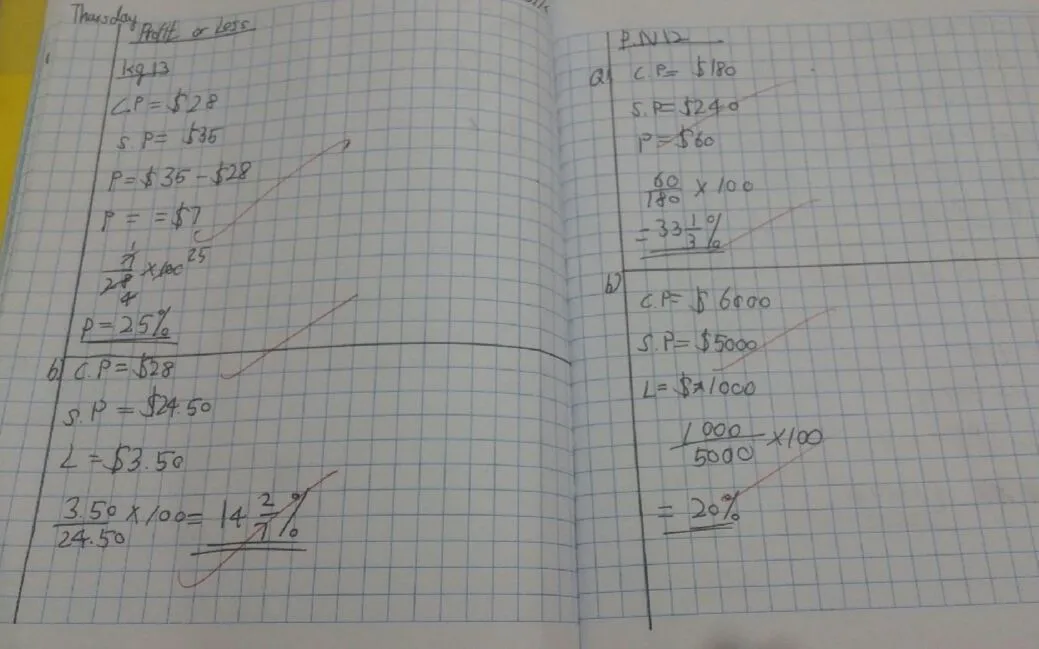 Thursday
Profit or Loss
1
kg 13
C.P = $28
S.P = $35
P = $35 - $28
P = = $7
1
7/28 × 100 25
4
P = 25%
b) C.P = $28
S.P = $24.50
L = $3.50
3.50/24.50 × 100 = 14 2/7 %
P.N 12
a) C.P = $180
S.P = $240
P = $60
60/180 × 100
= 33 1/3 %
b)
C.P = $6000
S.P = $5000
L = $1000
1000/5000 × 100
= 20%